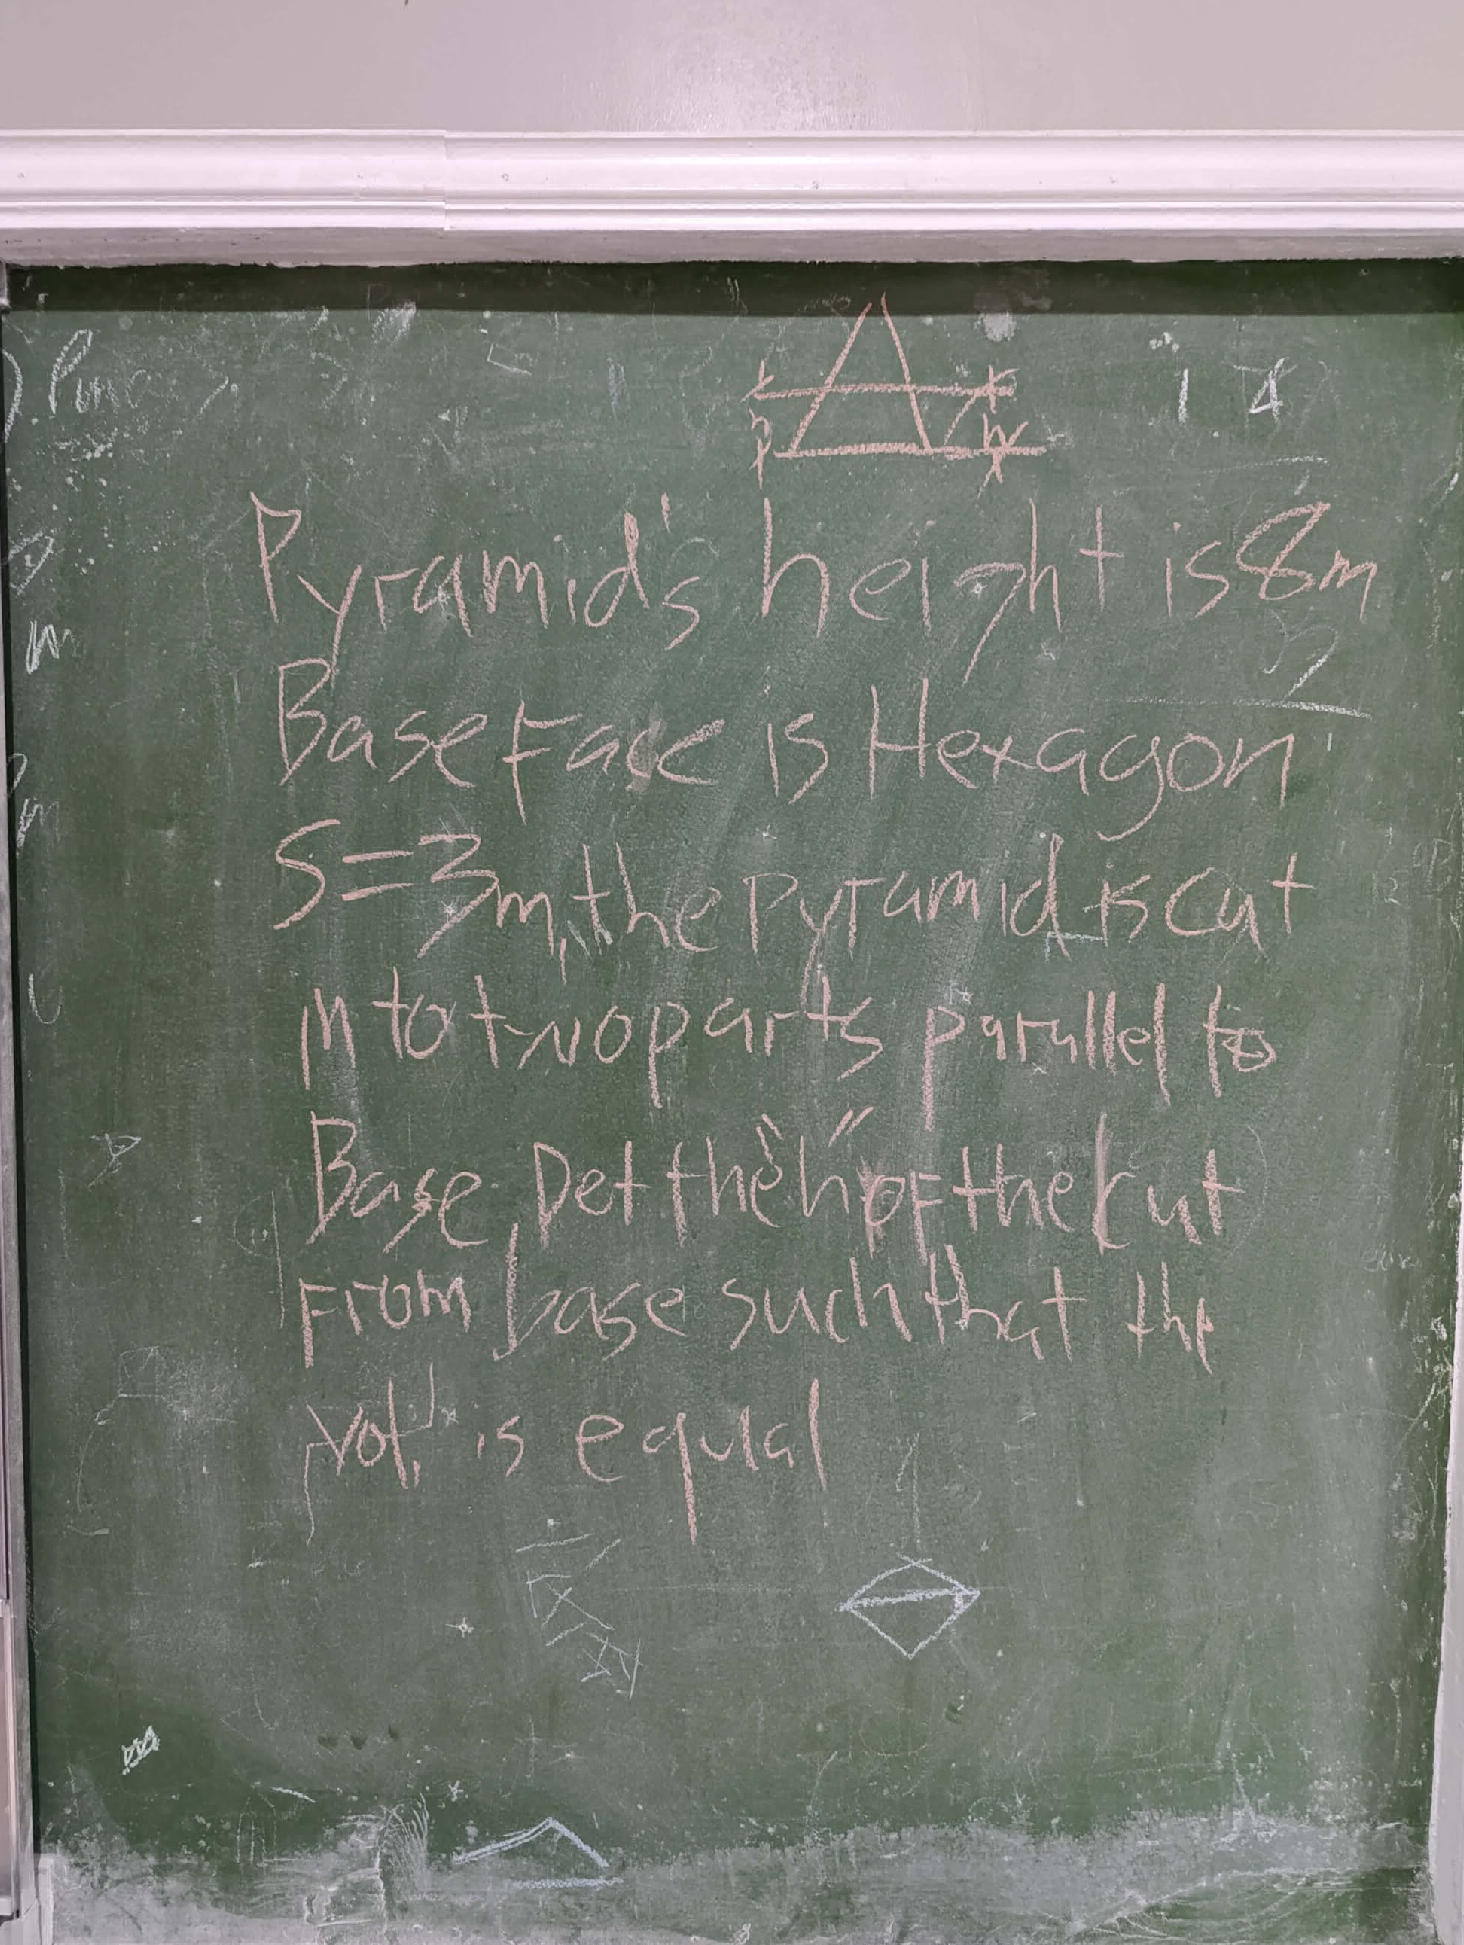 1 4
Pyramid's height is 8m
Base Face is Hexagon
S=3m, the Pyramid is cut
into two parts parallel to
Base. Det the "h" of the cut
From base such that the
vol. is equal